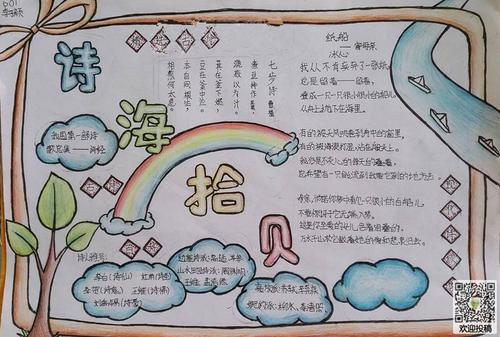 601
诗海拾贝
七步诗 曹植
煮豆持作羹,
漉豉以为汁。
萁在釜下燃,
豆在釜中泣。
本自同根生,
相煎何太急。
纸船
——寄母亲
冰心
我从不肯妄弃了一张纸,
总是留着——留着,
叠成一只一只很小的船儿,
从舟上抛下在海里。
有的被天风吹卷到舟中的窗里,
有的被海浪打湿,沾在船头上。
我仍是不灰心的每天的叠着,
总希望有一只能流到我要它到的地方去。
母亲,倘若你梦中看见一只很小的白船儿,
不要惊讶它无端入梦。
这是你至爱的女儿含着泪叠的,
万水千山求它载着她的爱和悲哀归去。
我国第一部诗
歌总集——诗经
诗人雅号:
李白(诗仙) 杜甫(诗圣)
王维(诗佛)
王维 孟浩然
欢迎投稿